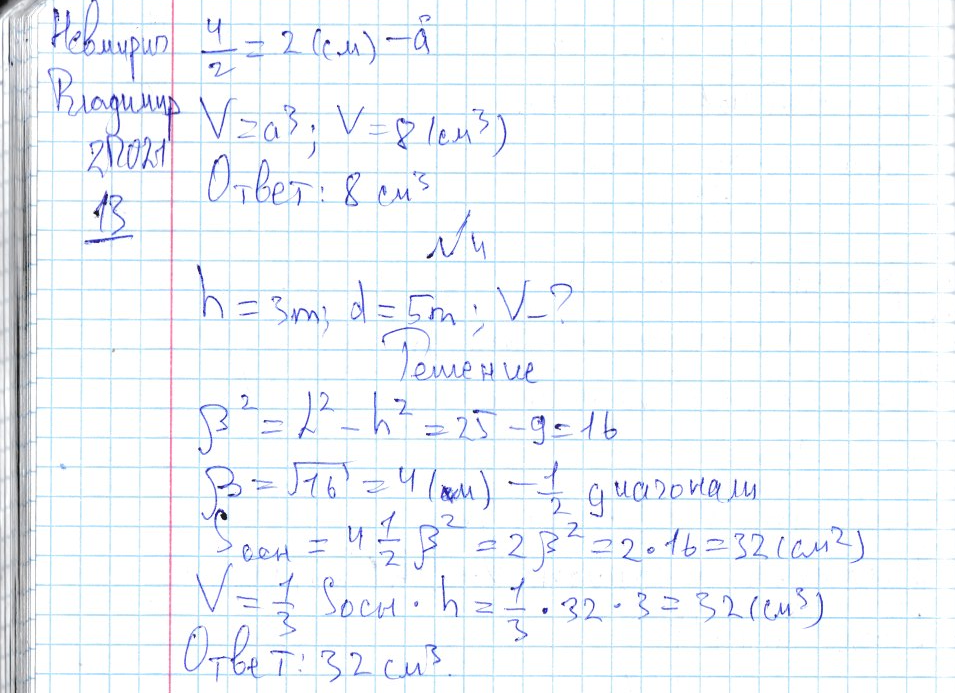 Владимир
13
4/2 = 2 (см) – a
V = a³; V = 8 (см³)
Ответ: 8 см³
№4
h = 3m; d = 5m; V – ?
Решение
β² = L² – h² = 25 – 9 = 16
β = √16 = 4 (см) – 1/2 диагонали
Sосн = 4 1/2 β² = 2β² = 2 · 16 = 32 (см²)
V = 1/3 Sосн · h = 1/3 · 32 · 3 = 32 (см³)
Ответ: 32 см³.